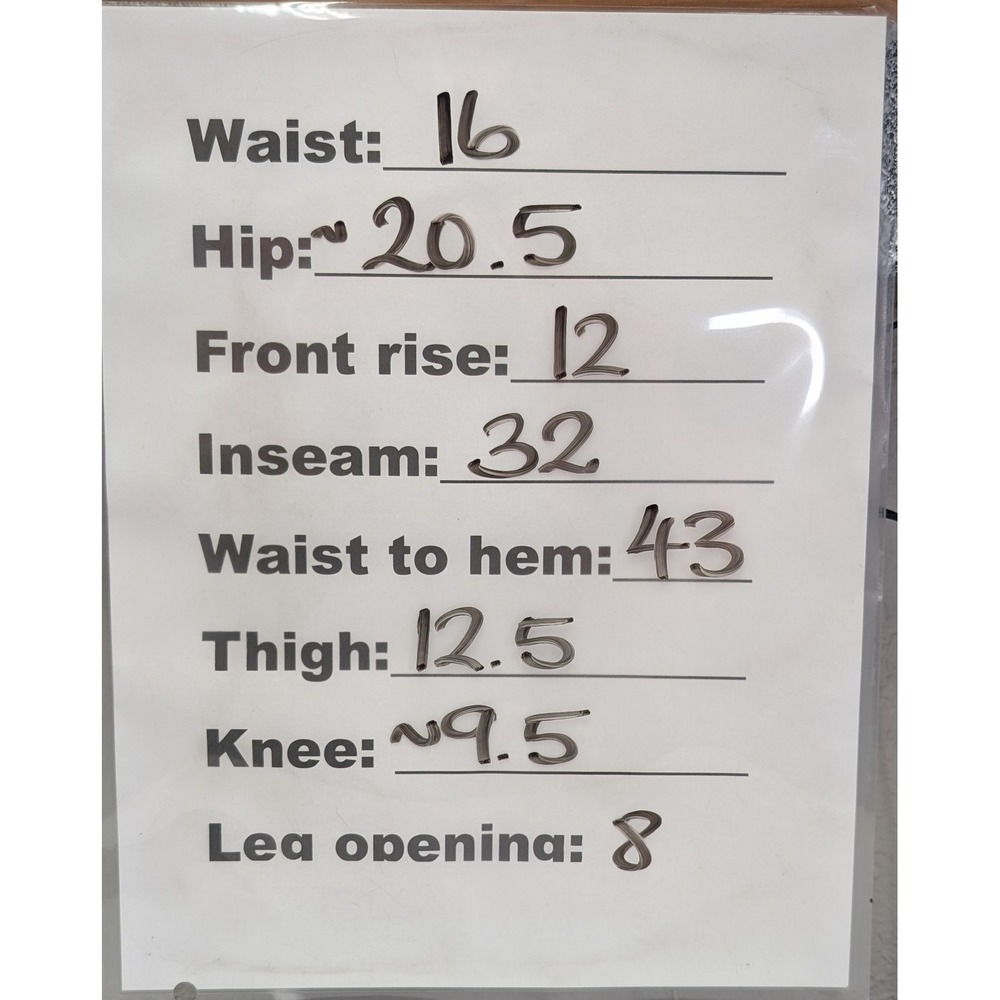 Waist: 16
Hip: ~ 20.5
Front rise: 12
Inseam: 32
Waist to hem: 43
Thigh: 12.5
Knee: ~9.5
Leg opening: 8